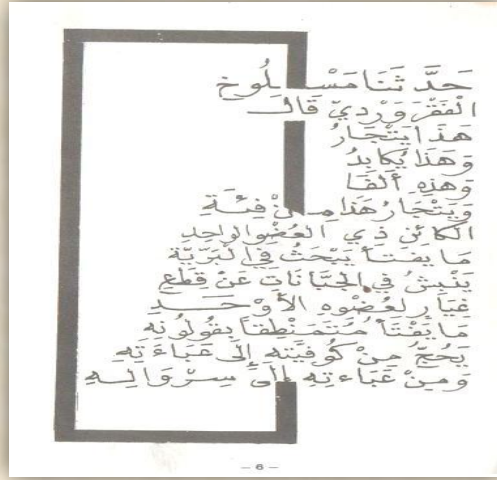 حَدَّثَنَا مَسْلُوخِ
الْفَقْرَ وَرْدِيّ قَالَ
هَذَا يَتْجَارُ
وَهَذَا يُكَابِدُ
وَهَذِهِ أَلْفَا
وَيَتْجَارُ هَذَا مِنْ فِئَةِ
الكَائِنِ ذِي العُضْوِ الوَاحِدِ
مَا يَفْتَأُ يَبْحَثُ فِي البَرِّيَّةِ
يَنْبِشُ فِي الجَبَّانَاتِ عَنْ قِطَعِ
غِيَارٍ لِعُضْوِهِ الأَوْحَدِ
مَا يَفْتَأُ مُتَمَنْطِقاً بِقُولُونِهِ
يَحُجُّ مِنْ كُوفِيَّتِهِ إِلَى عَبَاءَتِهِ
وَمِنْ عَبَاءَتِهِ إِلَى سِرْوَالِهِ
- 6 -